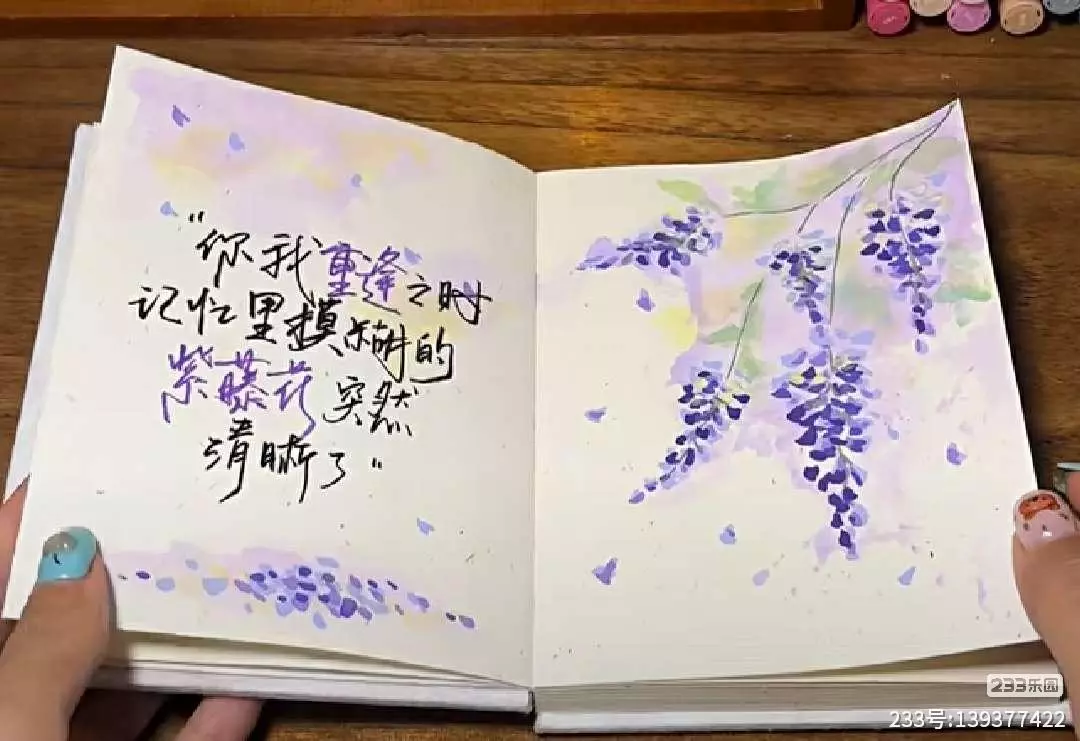 “你我重逢之时
记忆里模糊的
紫藤花突然
清晰了”
233乐园
233号:139377422